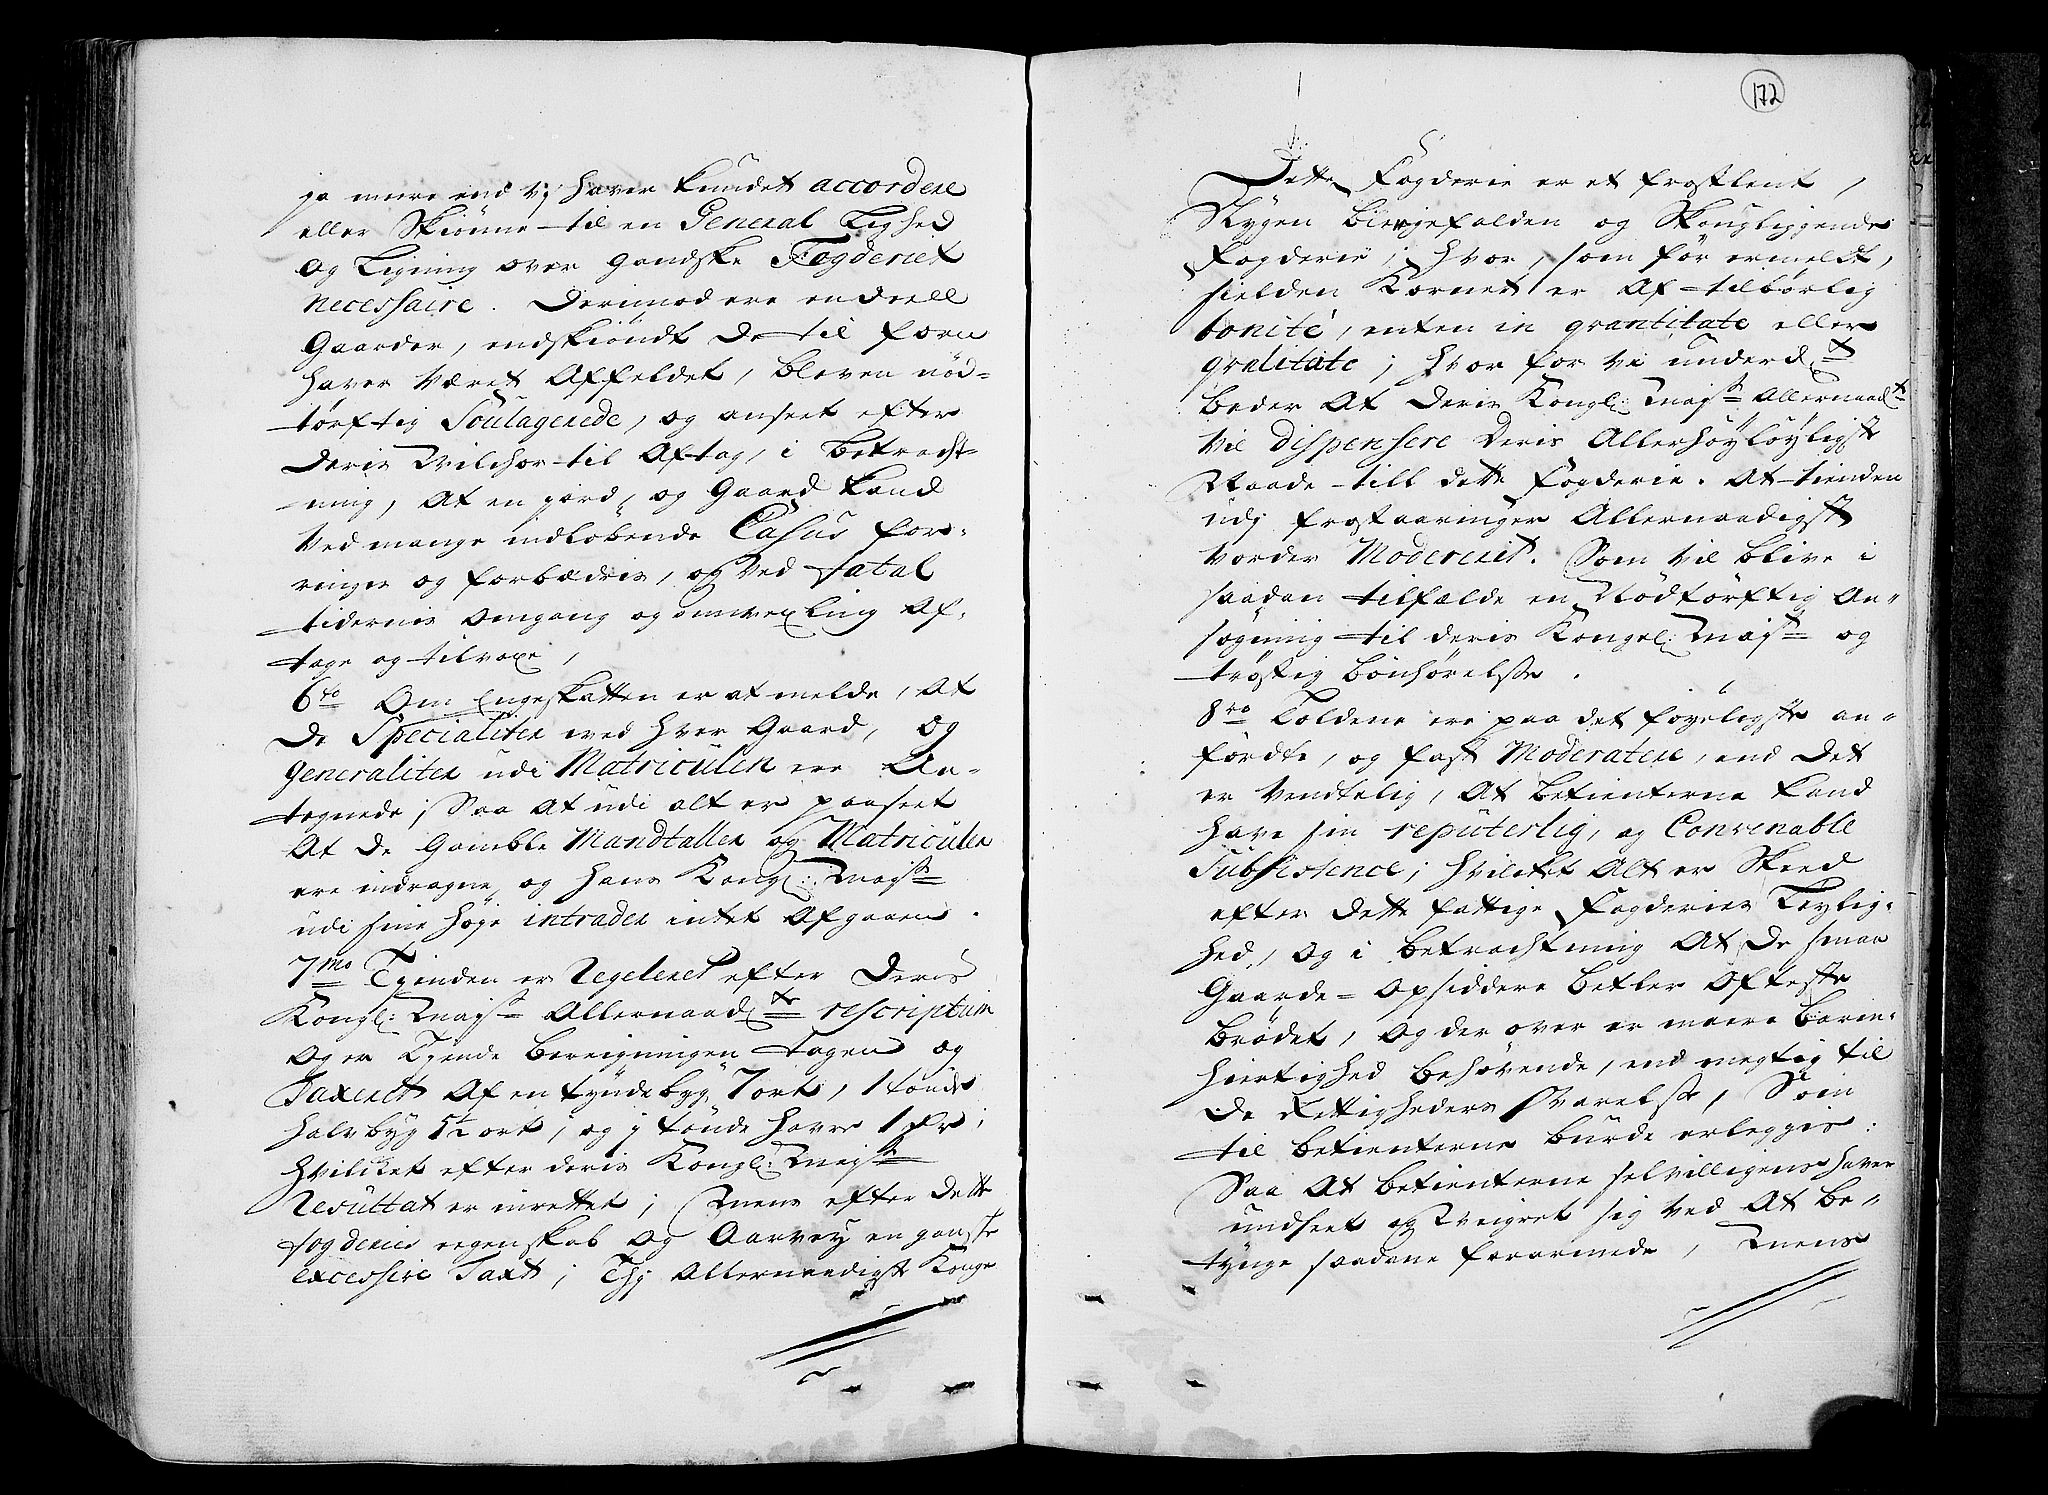 ja meere end vj hafver kundet accordere
eller Skiønne til en General Lighed
og Ligning over gandske Fogderiet
necessaire. Derimod ere en deell
Gaarder, endskiøndt De til forn
hafver Været Affeldet, bleven nød-
tørftig Soulagerede, og anseet efter
Deris Vilchor til Aftag, i betracht-
ning, At en jord, og Gaard kand
Ved mange indløbende Casus for-
ringes og forbædris, og Ved fatal
tidernis Omgang og omvexling Af-
tage og tilvoxe,
6to Om Engeskatten er at melde, At
De Specialiter ved hver Gaard, og
generaliter udi Matriculen ere An-
tegnede; Saa At udi alt er paaseet
At de Gamble Mandtaller og Matriculer
ere indragne, og Hans Kongl: Mayst
udi sine høye intrader intet Afgaaer.
7mo Tjenden er Regeleret efter Deris
Kongl: Mayst Allernaadste rescriptum
Og er Tjende Bereigningen tagen og
Taxeret Af en tynde byg 7 ort, 1 tønde
halv byg 5½ ort, og j tønde havre 1 Rdr;
Hvilcket efter deris Kongl: Mayst
Resultat er inrettet; Mens efter Dette
fogderies egenskab og Aarvey en ganske
excessive Taxt; Thj Allernaadigste Konge
172
Dette Fogderie er et frostlent,
Skygen biergefalden og Skougliggende
Fogderie; hvor, som før ermeldt,
sielden Kornet er Af tilbørlig
bonité, enten in qvantitate eller
qvalitate; hvor for Vi underd:st
beder At Deris Kongl: Mayst Allernaadst
Vil dispensere Deris Allerhøyløyligste
Naade till dette Fogderie. At tienden
udj frostaaringer Allernaadigst
Vorder Modereret. Som Vil blive i
saadan tilfælde en Nødtørftig An-
søgning til deris Kongel: Mayst og
trøstig bønhørelse.
8vo Toldene ere paa det føyeligste an-
førdte, og fast Moderatere, end Det
er Vendtelig, At betienterne kand
have sin reputerlig, og Convenable
Subsistence; hvilcket Alt er Skeed
efter Dette fattige Fogderies Leylig-
hed, Og i betrachtning At De smaa
Gaarde-Opsiddere betler Ofteste
brødet, Og der over er meere barm-
hiertighed behøvende, end megtig til
De Rettigheders Svarelse, Som
til betienterne burde erleggis:
Saa At betienterne selvvilligens hafver
undseet og Veigret sig Ved At be-
tynge saadane forarmede, Mens